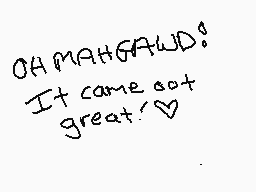 OH MAH GAWD!
It came oot
great! ♡